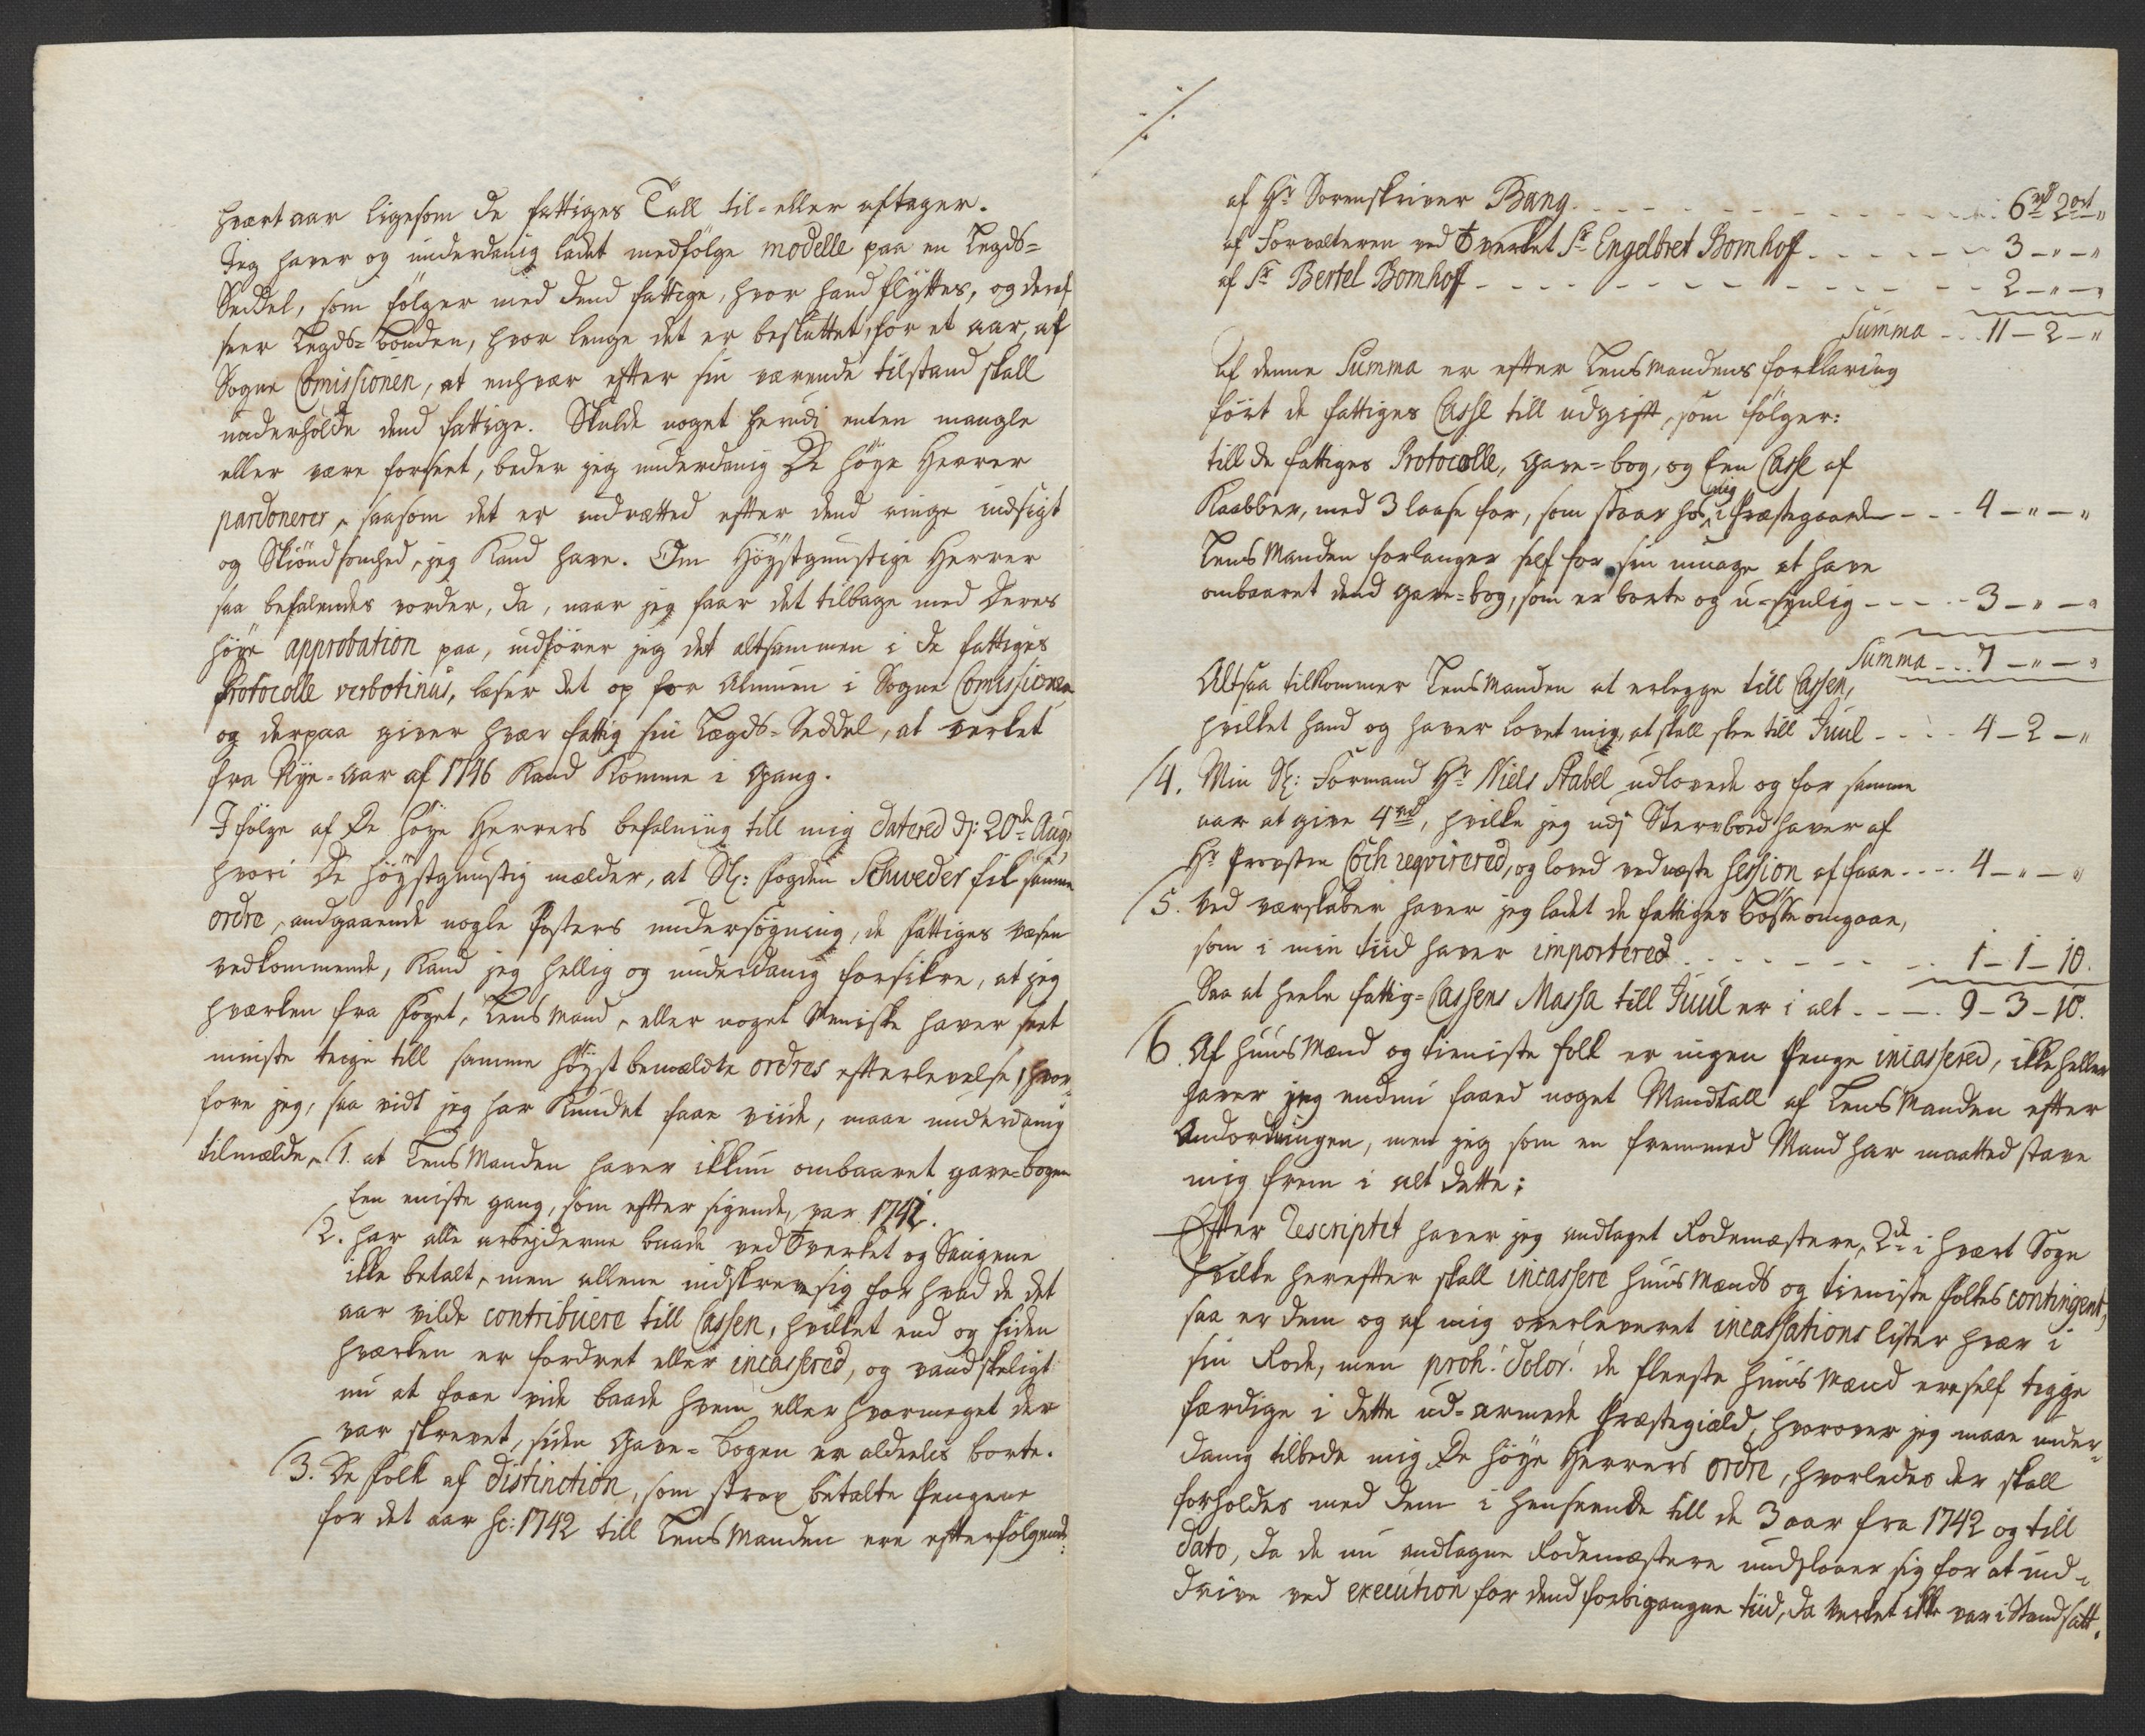 hvært aar ligesom de fattiges Tall til- eller aftager.
Jeg haver og underdanig ladet medfølge modelle paa en Legds-
Seddel, som følger med dend fattige, hvor hand flyttes, og deraf
seer Legds-Bonden, hvor lenge det er besluttet, for et aar, af
Sogne Comissionen, at enhver efter sin værende tilstand skall
underholde dend fattige. Skulde noget herudi enten mangle
eller være forseet, beder jeg underdanig De høye Herrer
pardonerer, saasom det er indrætted efter dend ringe indsigt
og Skiøndsomhed, jeg Kand have. Om Høystgunstige Herrer
saa befalendes vorder, da, naar jeg faar det tilbage med Deres
høye approbation paa, indfører jeg det altsammen i de fattiges
Protocolle verbotinus, læser det op for Almuen i Sogne Comissionen
og derpaa giver hvær fattig sin Legds-Seddel, at verket
fra Nye-Aar af 1746 Kand Komme i gang.
I følge af De høye Herrers befalning till mig datered d: 20de Aug:
hvori De høystgunstig melder, at Sl: fogden Schweder fik samme
ordre, andgaaende nogle Posters undersøgning, de fattiges væsen
vedkommende, Kand jeg hellig og underdanig forsikre, at jeg
hværken fra foget, Lensmand, eller noget Meniske haver seet
minste tegn till samme høystbemeldte ordres efterlevelse, hvor-
fore jeg, saa vidt jeg har Kundet faae viide, maae underdanig
tilmælde, 1. at Lensmanden haver ikkun ombaaret gave-bogen
Een eniste gang, som efter sigende, var 1742.
2. har alle arbejderne baade ved verket og Saugene
ikke betalt, men allene indskrevesig for hvad de det
aar vilde contribuere till Cassen, hvilket end og siden
hværken er fordret eller incassered, og vandskeligt
nu at faae vide baade hvem eller hvormeget der
var skrevet, siden Gave-Bogen er aldeeles borte.
3. De folk af distinction, som strax betalte Pengene
for det aar sc: 1742 till Lensmanden ere efterfølgende:
af Hr Sorenskriver Bang - - - 6 rd 2 ort "
af Forvalteren ved verket Sr Engelbret Bomhoff - - - 3 - " - "
af Sr Bertel Bomhoff - - - 2 - " - "
Summa - - 11 - 2 - "
Af denne Summa er efter Lensmandens forklaring
ført de fattiges Casse till udgift, som følger:
till de fattiges Protocolle, gave-bog, og Een Casse af
Kaabber, med 3 laase for, som staar hos mig i Præstegaarden - - - 4 - " - "
Lensmanden forlanger self for sin umage at have
ombaaret dend gave-bog, som er borte og u-synlig - - - 3 - " - "
Summa - - 7 - " - "
Altsaa tilkommer Lensmanden at erlegge till Cassen,
hvilket hand og haver lovet mig, at skall skee till Juul - - - 4 - 2 - "
4. Min Sl: Formand Hr Niels Stabel udlovede og for samme
aar at give 4 rd, hvilke jeg udj Stervboed haver af
Hr Provsten Coch reqvirered, og loved ved næste Session at faae - - - 4 - " - "
5. Ved værtskaber haver jeg ladet de fattiges bøsse omgaae,
som i min tiid haver importered - - - 1 - 1 - 10.
Saa at heele fattig-Cassens Massa till Juul er i alt - - - 9 - 3 - 10.
6. Af huusmænd og tieniste folk er ingen Penge incassered, ikke heller
haver jeg endnu faaed noget Mandtall af Lensmanden efter
Andordningen, men jeg som en fremmed Mand har maatted stave
mig frem i alt dette;
Efter Rescriptet haver jeg andtaget Rodemæstere, 2de i hvært Sogn
hvilke herefter skall incassere huusmænds og tieniste folkes contingent,
saa er dem og af mig overleveret incassations lister hvær i
sin Rode, men proh! dolor! de fleeste huusmænd ere self tigge
færdige i dette ud-armede Præstegiæld, hvorover jeg maae under-
danig tilbede mig De høye Herrers ordre, hvorledes der skall
forholdes med dem i henseende till de 3 aar fra 1742 og till
dato, da de nu andtagne Rodemæstere undslaaer sig for at ind-
drive ved execution for dend forbigangne tiid, da Verket ikke var i Stand satt.